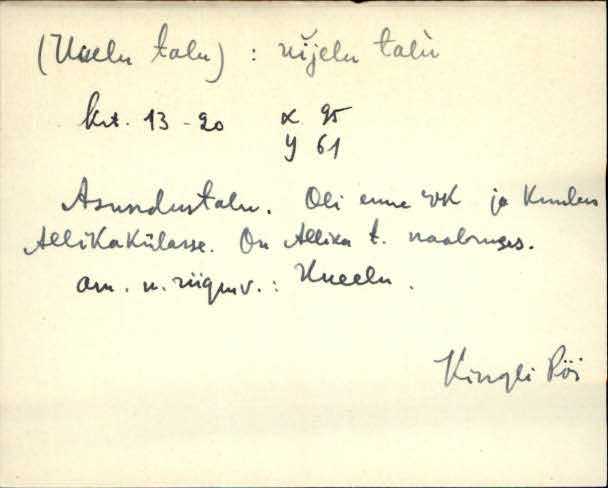 (Uueelu talu) : ŭĭjelu talu
krt. 13 - 20 x 95
y 61
Asundustalu. Oli enne VK ja kuulus
Allikakülasse. On Allika t. naabruses.
am. n. riigmv.: Uueelu.
Kingli Pöi